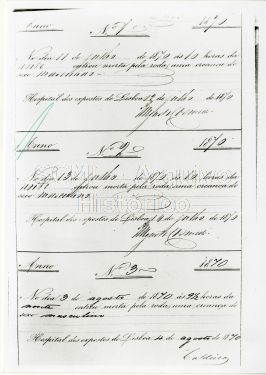 Anno Nº 1 1870
No dia 11 de Julho de 1870 ás 10 horas da
noite entrou morta pela roda, uma creança do
sexo masculino
Hospital dos expostos de Lisboa 12 Julho 1870
Anno Nº 2 1870
No dia 13 de Julho de 1870 ás horas da
noite entrou morta pela roda, uma creança do
sexo masculino.
Hospital dos expostos de Lisboa 14 de Julho 1870
Histórico
Anno Nº 3 1870
No dia 3 de agosto de 1870 ás 9½ horas da
noute entrou morta pela roda, uma creança do
sexo masculino
Hospital dos expostos de Lisboa 4 de agosto de 1870